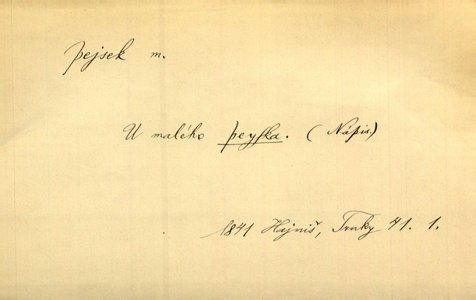 pejsek m.
U malého peyska. (Nápis.)
1841 Hajniš, Trnky 41. 1.